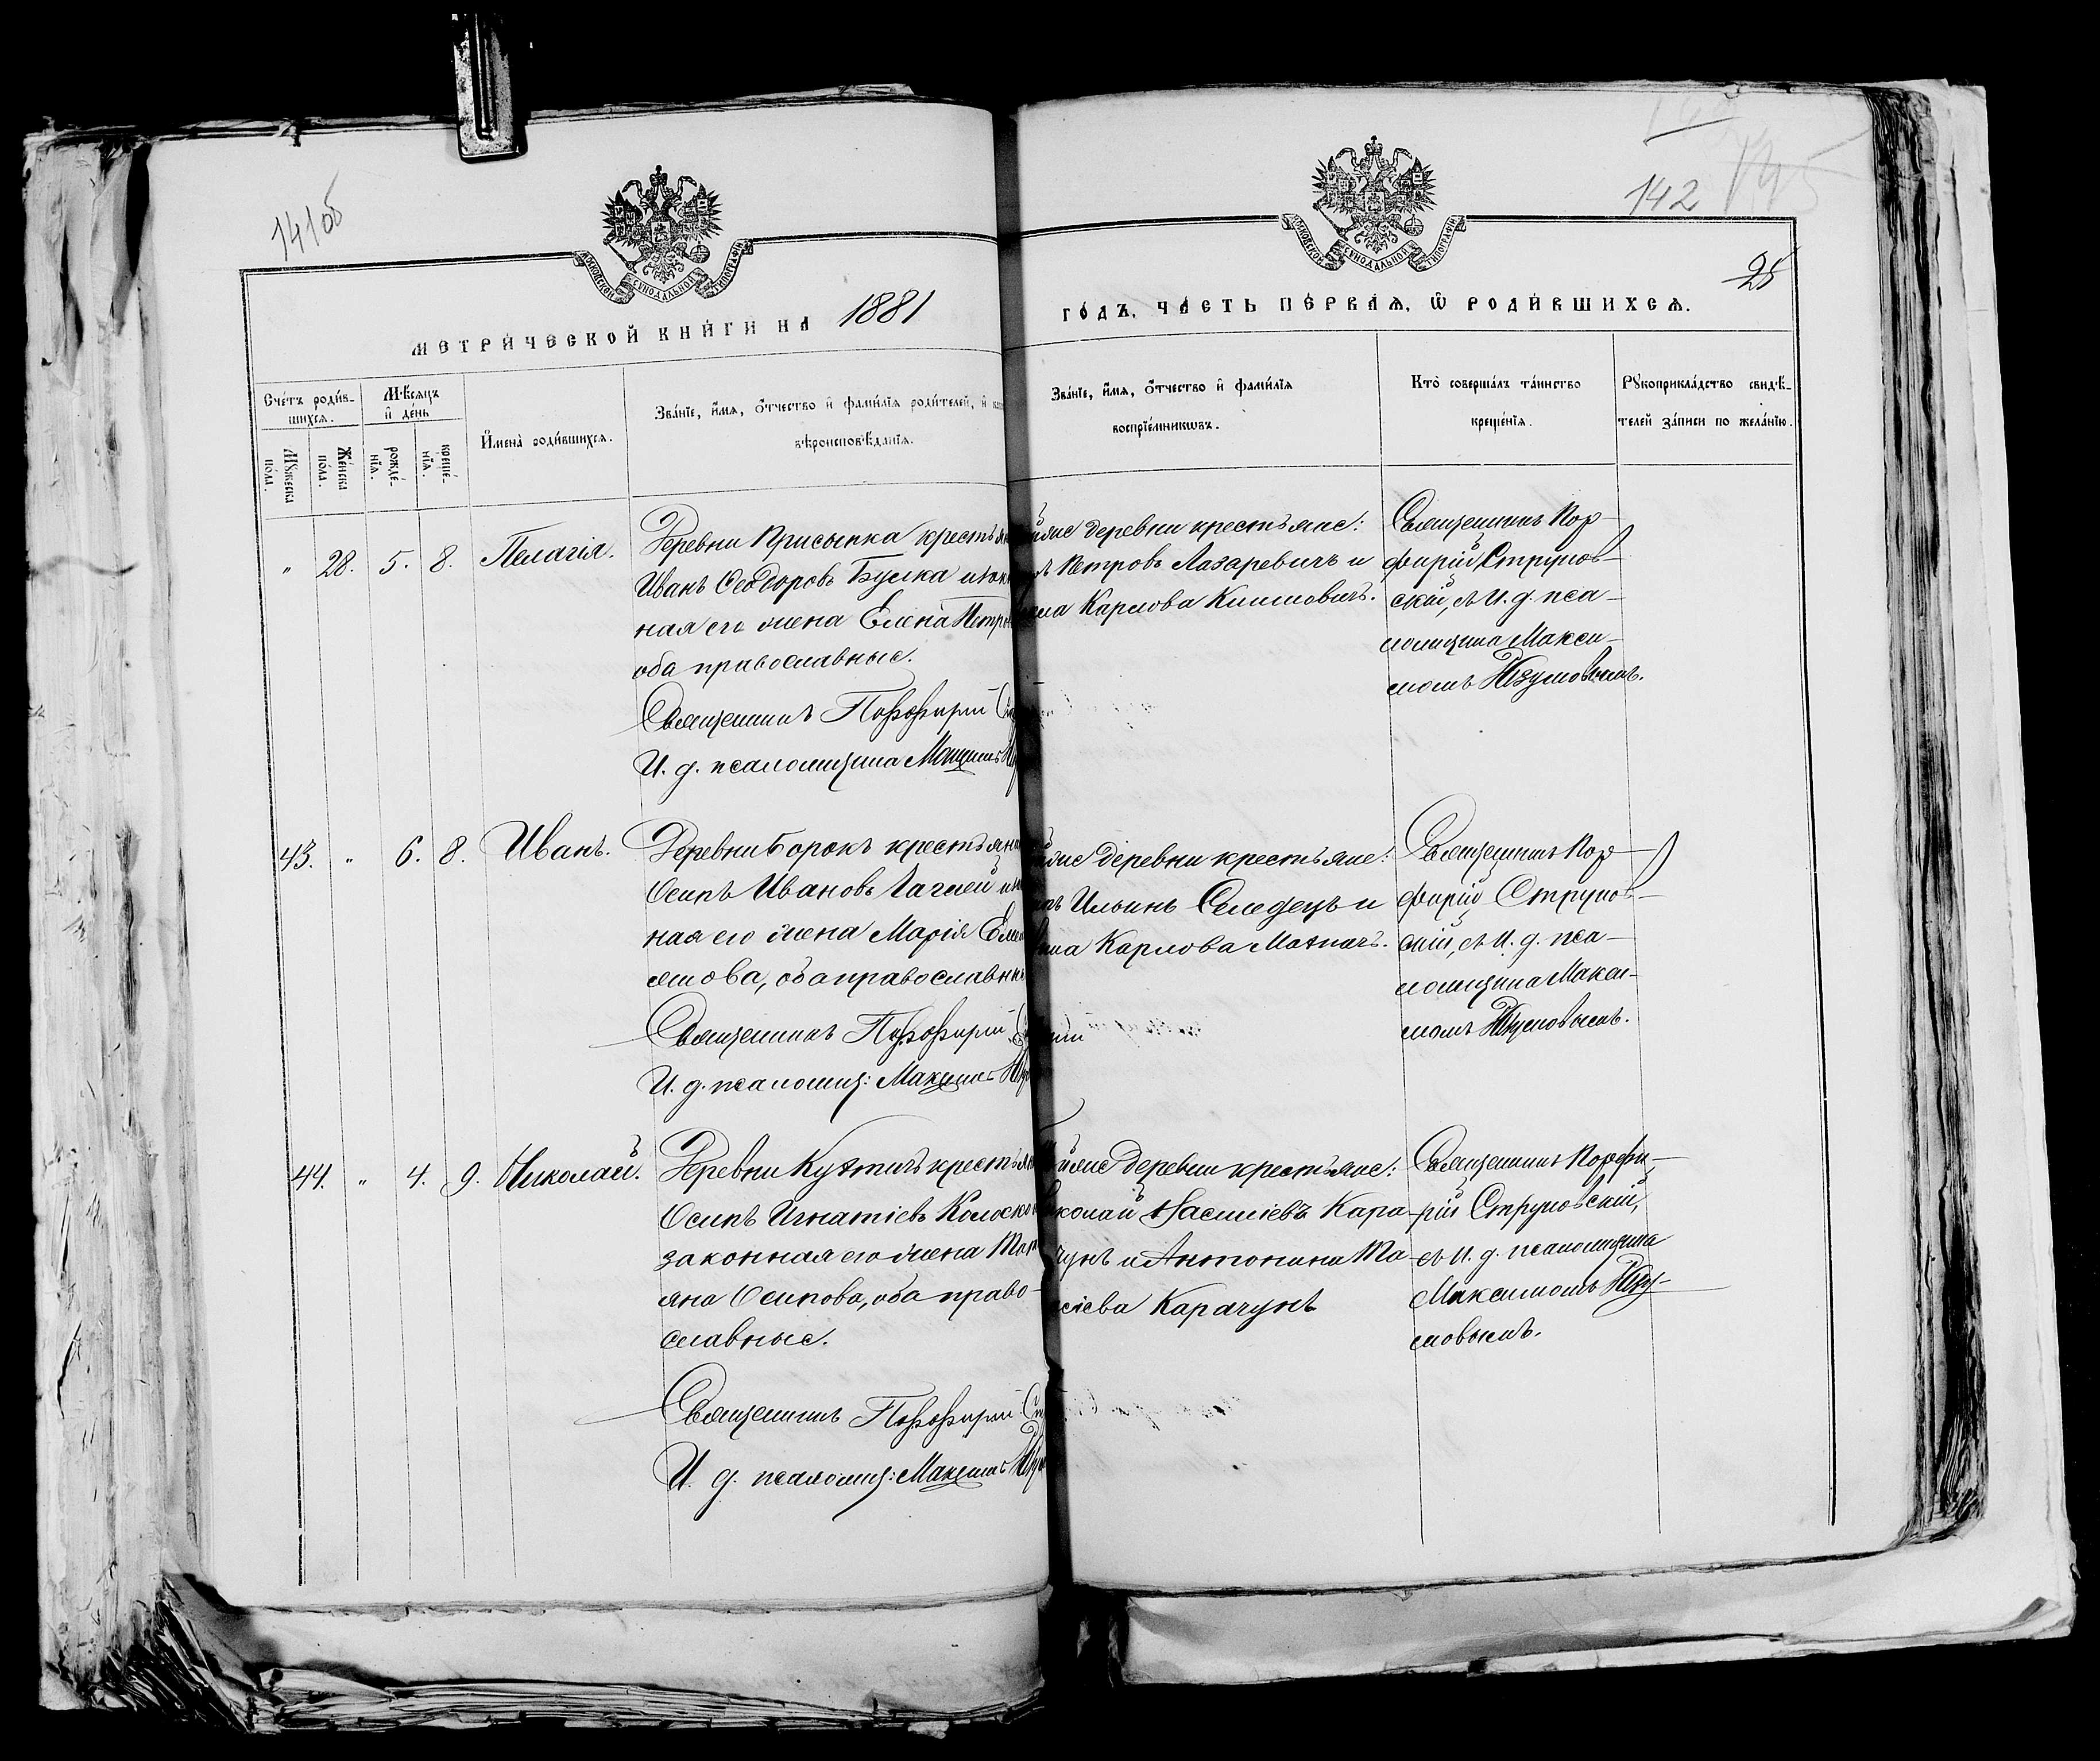 141об
142
25
МОСКОВСКОЙ СУНОДАЛЬНОЙ ТИПОГРАФІИ
МОСКОВСКОЙ СУНОДАЛЬНОЙ ТИПОГРАФІИ
МЕТРИ́ЧЕСКОЙ КНИ́ГИ НА 1881
ГО́ДЪ, ЧА́СТЬ ПЕ́РВАЯ, Ѿ РОДИ́ВШИХСЯ.
Сче́тъ роди́в-
шихся.
Мꙋ́жеска по́ла.
Же́нска по́ла.
Мѣ́сяцъ
и де́нь
рожде́-
нїя.
креще́-
нїя.
Имена̀ роди́вшихся.
Зва́нїе, и́мя, о́тчество и фами́лїя роди́телей, и
вѣроисповѣ́данїя.
Зва́нїе, и́мя, о́тчество и фами́лїя
воспрїе́мникѡвъ.
Кто̀ соверша́лъ та́инство
креще́нїя.
Рꙋкоприкла́дство свидѣ́-
телей за́писи по жела́нїю.
" 28. 5. 8. Пелагія.
Деревни Присынка крестьян
Иванъ Ѳеодоровъ Булка и закон
ная его жена Елена Петро
оба православные.
Священникъ Порфирій
И. д. псаломщика Максимъ
деревни крестьяне:
Петровъ Лазаревичъ и
Карлова Климовичъ.
Священникъ Пор-
фирій Струков-
скій, съ И. д. пса-
ломщика Макси-
момъ
43. " 6. 8. Иванъ.
Деревни Борокъ крестьяни
Осипъ Ивановъ
ная его жена Марія Еме
янова, оба православны
Священникъ Порфирій
И. д. псаломщ: Максимъ
деревни крестьяне:
Ильинъ Селедецъ и
Карлова
Священникъ Пор-
фирій Струков-
скій, съ И. д. пса-
ломщика Макси-
момъ
44. " 4. 9. Николай.
Деревни крестьян
Осипъ Игнатіевъ
законная его жена
яна Осипова, оба право-
славные.
Священникъ Порфирій
И. д. псаломщ: Максимъ
деревни крестьяне:
Василіевъ Кара-
чунъ и Антонина Та-
сіева Карачунъ
Священникъ Порфи-
рій Струковскій,
съ И. д. псаломщика
Максимомъ